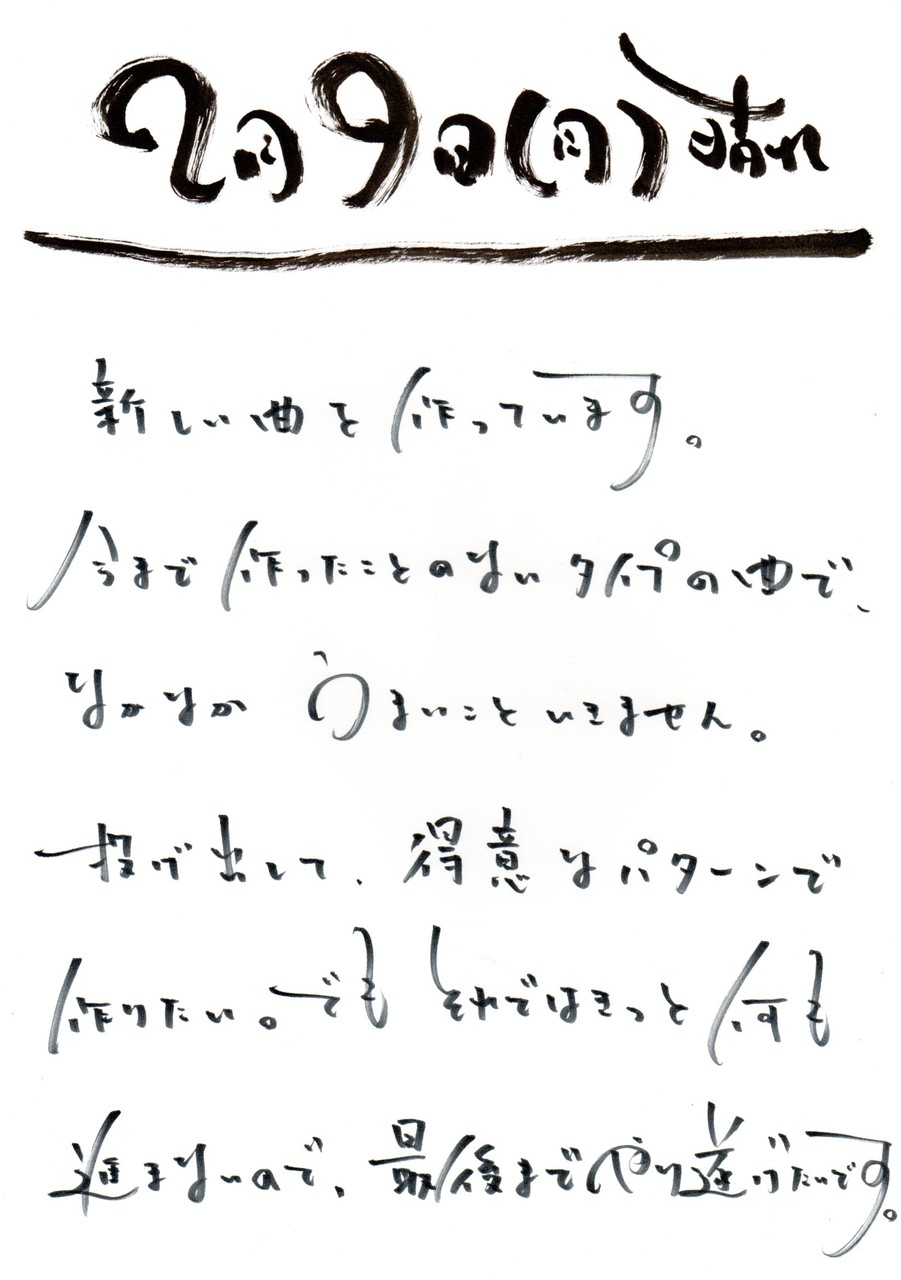 2月9日(月)晴れ
新しい曲を作っています。
今まで作ったことのないタイプの曲で、
なかなか うまいこといきません。
投げ出して、得意なパターンで
作りたい。でも それではきっと何も
進まないので、最後までやり遂げたいです。